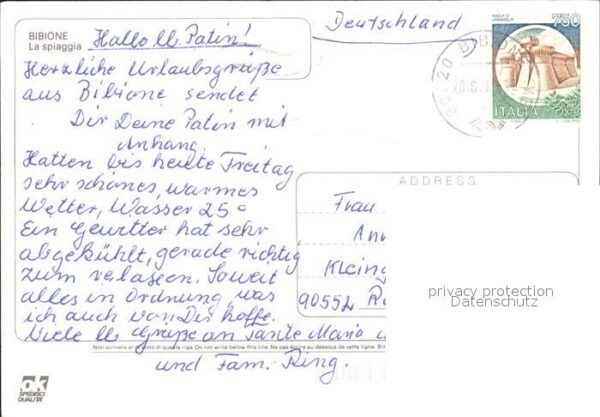 BIBIONE
La spiaggia
Hallo ll Patin!
Herzliche Urlaubsgrüße
aus Bibione sendet
Dir Deine Patin mit
Anhang.
Hatten bis heute Freitag
sehr schönes, warmes
Wetter, Wasser 25°
Ein Gewitter hat sehr
abgekühlt, gerade richtig
zum velassen. Soweit
alles in Ordnung was
ich auch von Dir hoffe.
Viele ll Grüße an Tante Maria u
und Fam. Ring.
Non scrivere al disotto di questa riga. Do not write below this line. Ne pas écrire au dessous de cette ligne.
ok
SPEDISCI
QUALITÀ
Deutschland
750
ITALIA
BIBIONE
ADDRESS
Frau
Kleing
90552
privacy protection
Datenschutz